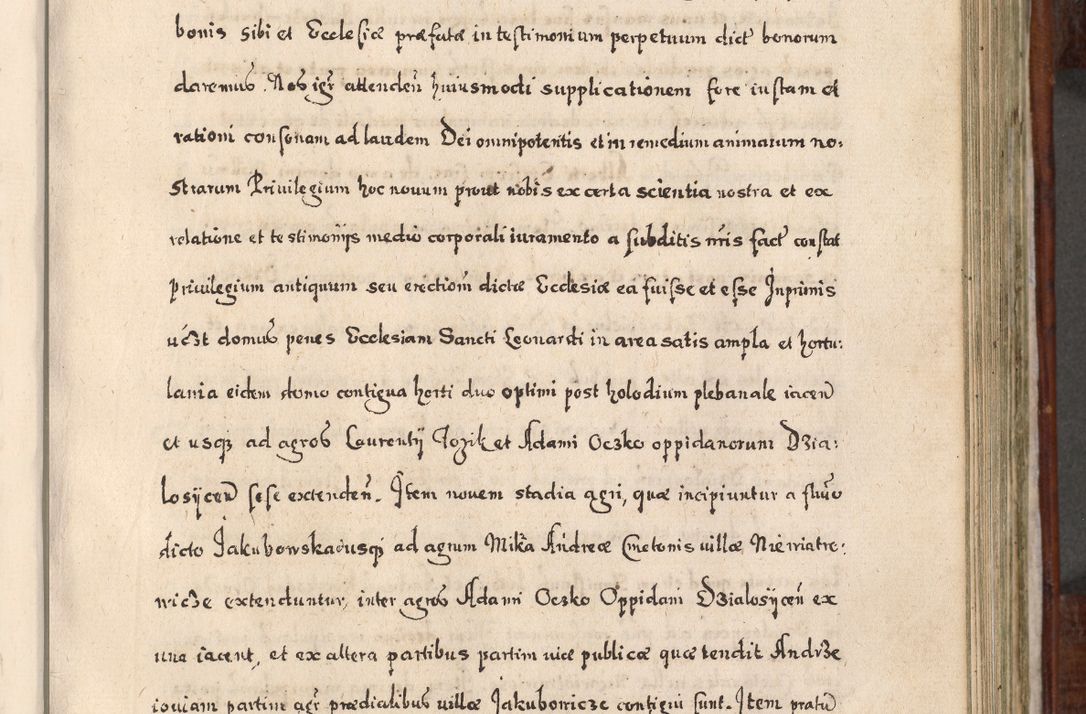 bonis sibi et Ecclesiæ præfatæ in testimonium perpetuum dict bonorum
daremus. Nos igr attenden huiusmodi supplicationem fore iustam et
rationi consonam ad laudem Dei omnipotentis et in remedium animarum no:
strarum Priuilegium hoc nouum prout nobis ex certa scientia nostra et ex
relatione et testimonijs medio corporali iuramento a subditis nris fact constat
priuilegium antiquum seu erectiom dictæ Ecclesiæ ea fuisse et esse Inprimis
domus penes Ecclesiam Sancti Leonardi in area satis ampla et hortu:
lania eidem domo contigua horti duo optimi post holodium plebanale iacen
et usq ad agros Laurentij Jozik et Adami Oczko oppidanorum Dzia:
losijcen sese extenden. Item nouem stadia agri, quæ incipiuntur a fluuo
dicto Jakubowska usq ad agrum Mika Andreæ Cmetonis uillæ Niewiatro:
wicze extenduntur, inter agros Adami Oczko Oppidani Dzialosijcen ex
una iacent, et ex altera partibus partim uiæ publicæ quæ tendit Andrze
iouiam partim agr prædialibus uillæ Jakubowicze contigui sunt. Item pratu